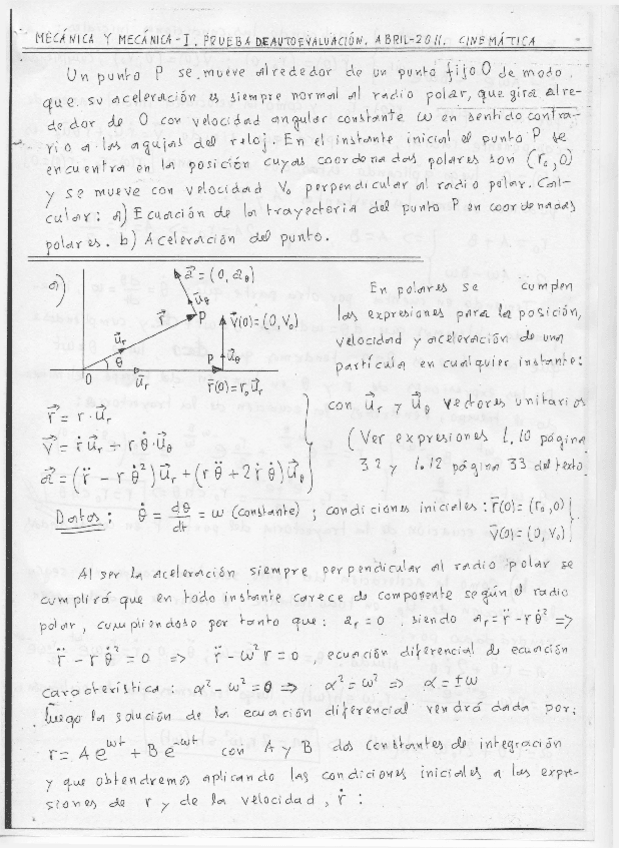 MECÁNICA Y MECÁNICA-I. PRUEBA DE AUTOEVALUACIÓN. ABRIL-2011. CINEMÁTICA
Un punto P se mueve alrededor de un punto fijo O de modo
que su aceleración es siempre normal al radio polar, que gira alre-
dedor de O con velocidad angular constante ω en sentido contra-
rio a las agujas del reloj. En el instante inicial el punto P se
encuentra en la posición cuyas coordenadas polares son (r₀,0)
y se mueve con velocidad V₀ perpendicular al radio polar. Cal-
cular: a) Ecuación de la trayectoria del punto P en coordenadas
polares. b) Aceleración del punto.
a)
a⃗=(0, a_θ)
u⃗_θ
r⃗
P
V⃗(0)=(0,V₀)
u⃗_r
θ
P
u⃗_θ
O
u⃗_r
r⃗(0)=r₀u⃗_r
En polares se cumplen
las expresiones para la posición,
velocidad y aceleración de una
partícula en cualquier instante:
r⃗ = r·u⃗_r
V⃗ = ṙu⃗_r + rθ̇·u⃗_θ
a⃗ = (r̈ - rθ̇²)u⃗_r + (rθ̈ + 2ṙθ̇)u⃗_θ
con u⃗_r y u⃗_θ vectores unitarios
(Ver expresiones 1.10 página
32 y 1.12 página 33 del texto
Datos: θ̇ = dθ/dt = ω (constante) ; condiciones iniciales: r⃗(0)=(r₀,0)
V⃗(0)=(0,V₀)
Al ser la aceleración siempre perpendicular al radio polar se
cumplirá que en todo instante carece de componente según el radio
polar, cumpliendose por tanto que: a_r=0 siendo a_r=r̈-rθ̇² =>
r̈ - rθ̇² = 0 => r̈ - ω²r = 0, ecuación diferencial de ecuación
característica: α²-ω²=0 => α²=ω² => α=±ω
luego la solución de la ecuación diferencial vendrá dada por:
r = A e^ωt + B e^-ωt con A y B dos constantes de integración
y que obtendremos aplicando las condiciones iniciales a las expre-
siones de r y de la velocidad, ṙ :